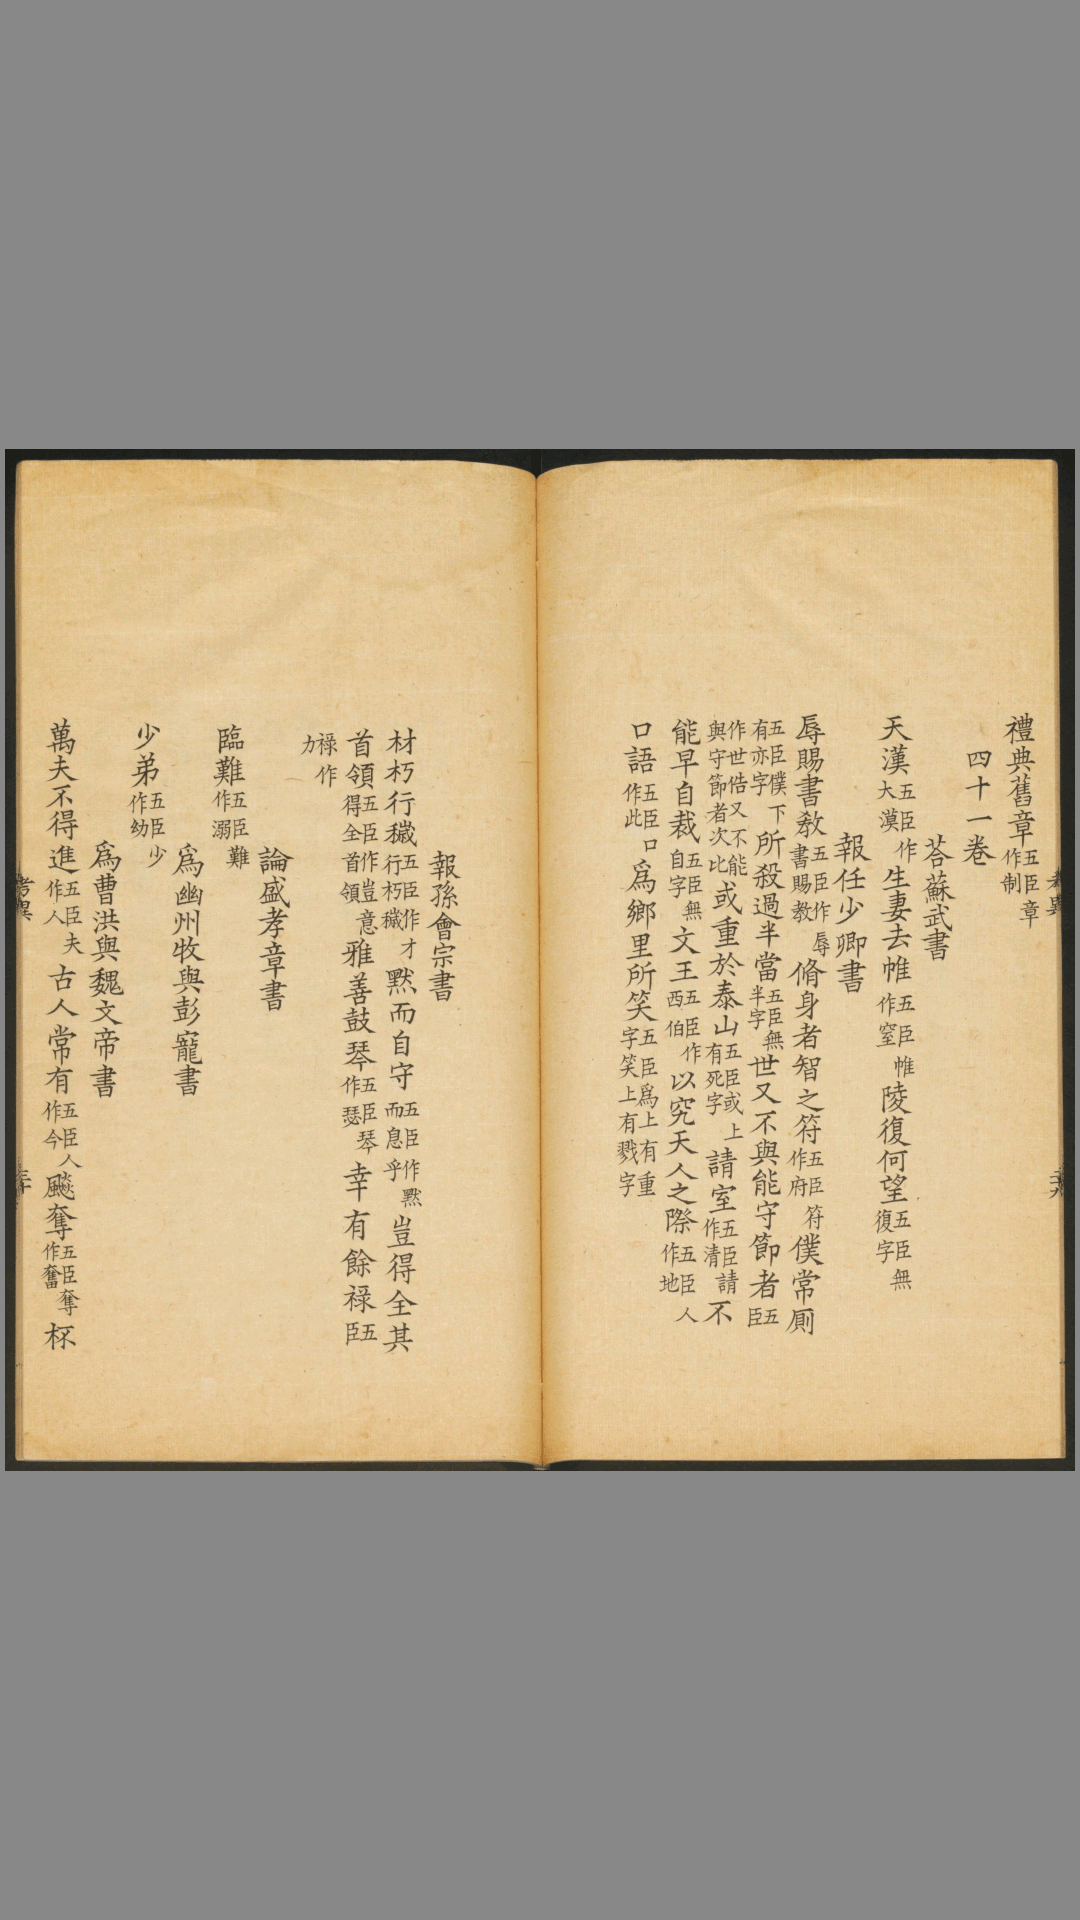 禮典舊章五臣章作制
四十一卷
荅蘇武書
天漢五臣作大漠生妻去帷五臣帷作室陵復何望五臣無復字
報任少卿書
辱賜書敎五臣作辱書賜教脩身者智之符五臣符作府僕常厠
五臣僕下有亦字所殺過半當五臣無半字世又不與能守節者五臣
作世俈又不能與守節者次比或重於泰山五臣或上有死字請室五臣請作清不
能早自裁五臣無自字文王五臣作西伯以究天人之際五臣人作地
口語五臣口作此爲鄉里所笑五臣爲上有重字笑上有戮字
報孫會宗書
材朽行穢五臣作才行朽穢默而自守五臣作默而息乎豈得全其
首領五臣作豈意得全首領雅善鼓琴五臣琴作瑟幸有餘祿五臣
祿作力
論盛孝章書
臨難五臣難作溺
爲幽州牧與彭寵書
少弟五臣少作幼
爲曹洪與魏文帝書
萬夫不得進五臣夫作人古人常有五臣人作今飈奪五臣奪作奮杯